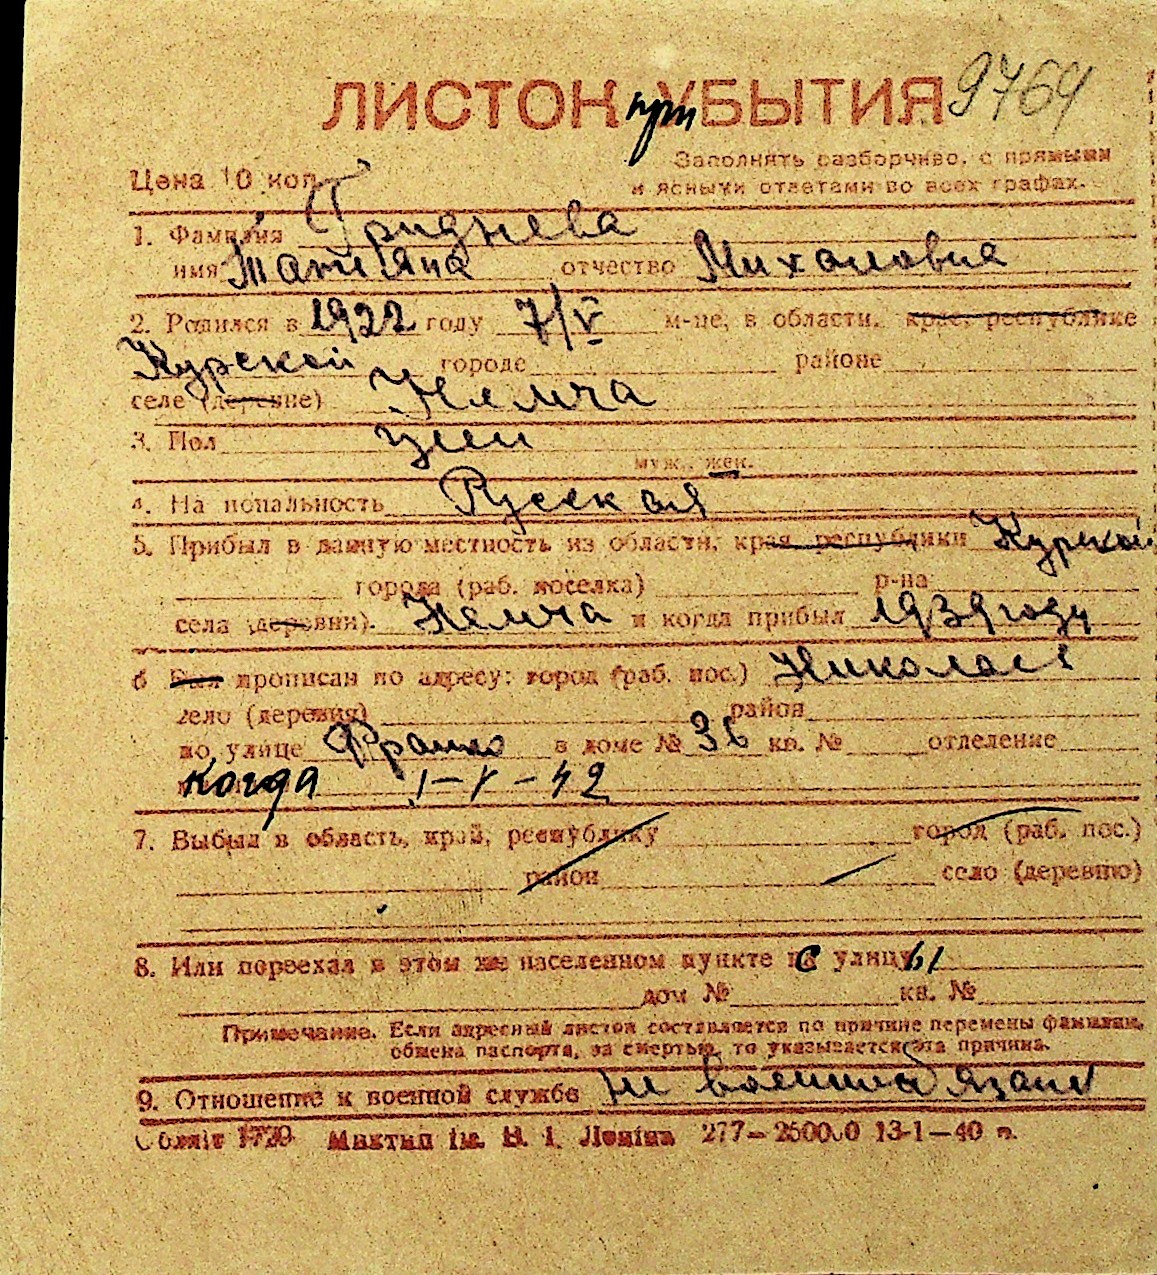 ЛИСТОК при УБЫТИЯ 9764
Цена 10 коп.
Заполнять разборчиво, с прямыми
и ясными ответами во всех графах.
1. Фамилия Гриднева
имя Татьяна отчество Михаловна
2. Родился в 1922 году 7/V м-це, в области, края, республике
Курской городе районе
селе (деревне) Немча
3. Пол жен
муж., жен.
4. Национальность Русская
5. Прибыл в данную местность из области, края, республики Курской
города (раб. поселка) р-на
села (деревни). Немча и когда прибыл 1939 году
6 Был прописан по адресу: город (раб. пос.) Николаев
село (деревня) район
по улице Франко в доме № 36 кв. № отделение
когда 1-V-42
7. Выбыл в область, край, республику город (раб. пос.)
район село (деревню)
8. Или переехал в этом же населенном пункте с улицы
дом № кв. №
Примечание. Если адресный листок составляется по причине перемены фамилии,
обмена паспорта, за смертью, то указывается эта причина.
9. Отношение к военной службе не военнообязан
Обліт 1720 Миктип ім. В. І. Леніна 277—250000 13-1—40 п.